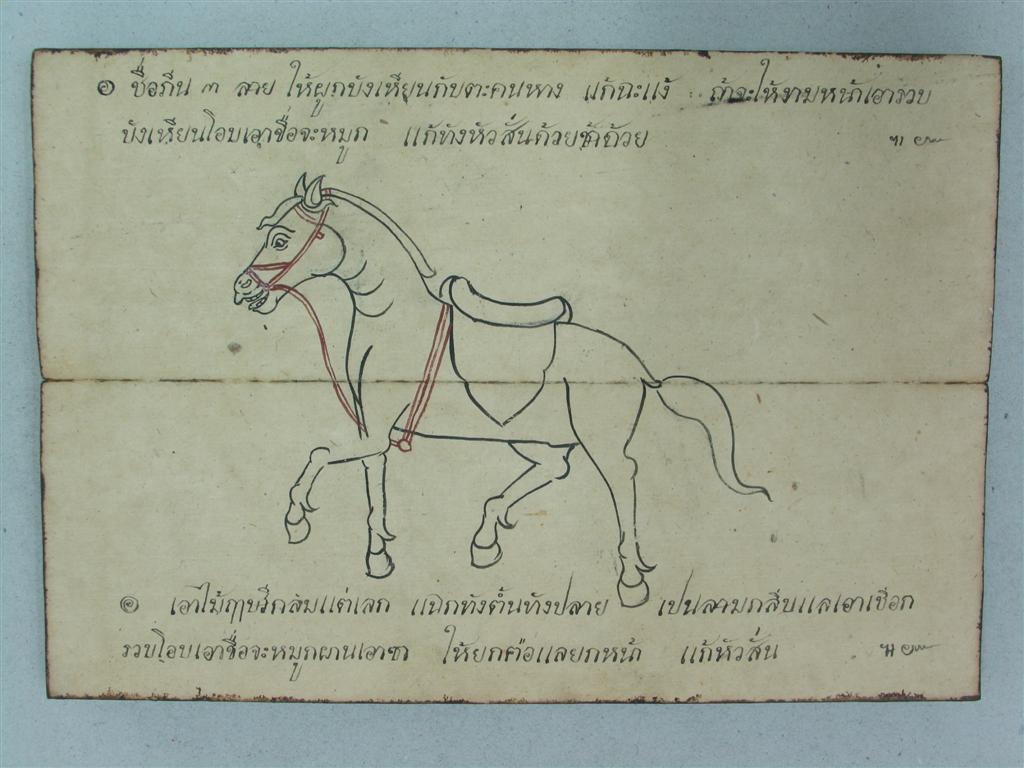 ๏ ชื่อภึน ๓ ลาย ให้ผูกบังเหียนกับตะคนหาง แก้นะแง้ ถ้าจะให้งามหน้าเอารวบ
บังเหียนโอบเอาชื่อจะหมูก แก้ทังหัวสั่นด้วยช้าด้วย
๏ เอาไม้ กลมแต่เลก ทังต้นทังปลาย เปนลามกสีบแลเอาเชือก
รวบโอบเอาชื่อจะหมูกผานเอาซา ให้ยกฅอแลยกหน้า แก้หัวสั่น